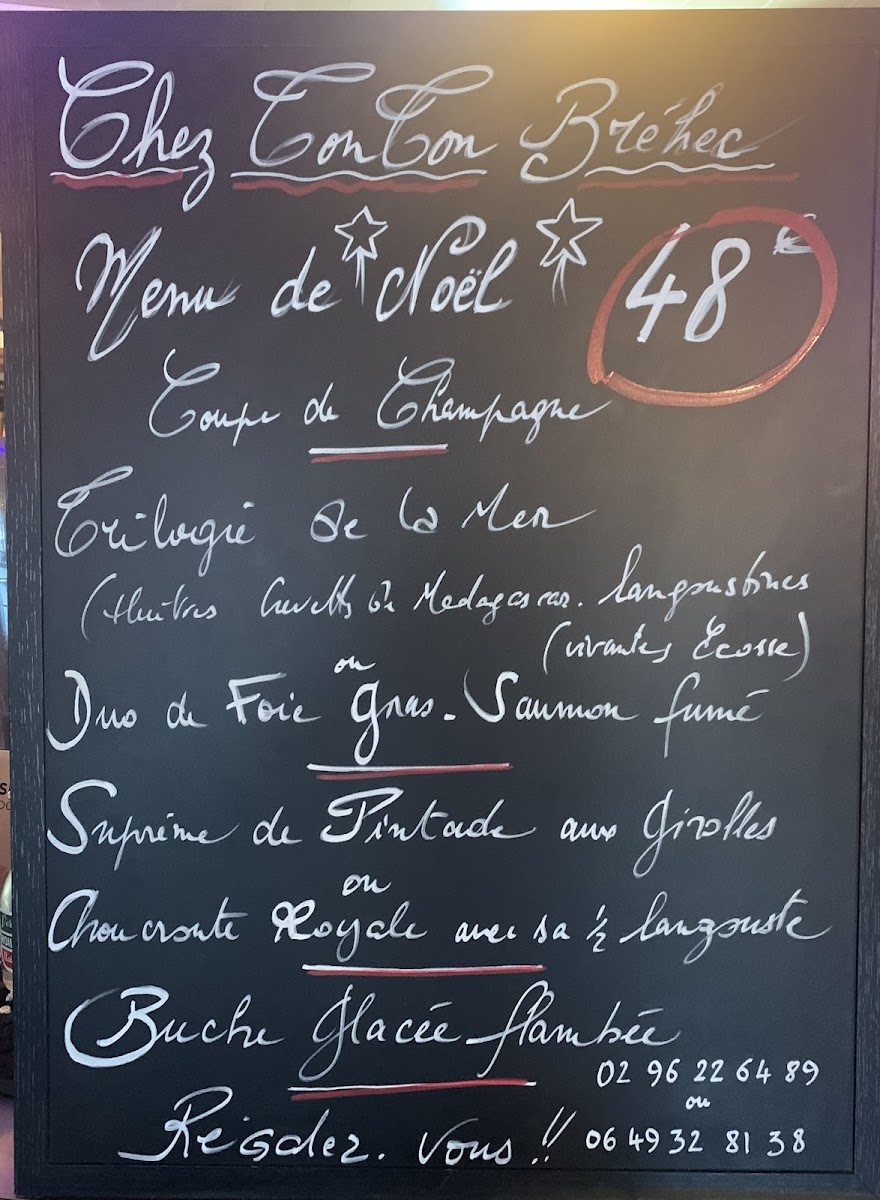 Chez TonTon Bréhec
Menu de Noël 48€
Coupe de Champagne
Trilogie de la Mer
(Huîtres Crevettes de Madagascar. langoustines
(vivantes Ecosse)
ou
Duo de Foie gras - Saumon fumé
Suprême de Pintade aux Girolles
ou
Choucroute Royale avec sa 1/2 langouste
Buche Glacée flambée
02 96 22 64 89
ou
Régalez. vous !! 06 49 32 81 38